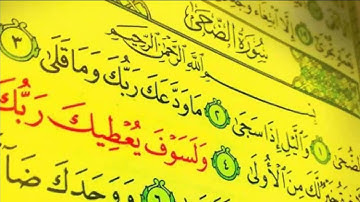 سُورَةُ الضُّحَىٰ
بِسْمِ اللَّهِ الرَّحْمَٰنِ الرَّحِيمِ
١ وَالَّيْلِ إِذَا سَجَىٰ ٢ مَا وَدَّعَكَ رَبُّكَ وَمَا قَلَىٰ ٣
لَّكَ مِنَ الْأُولَىٰ ٤ وَلَسَوْفَ يُعْطِيكَ رَبُّكَ
٦ وَوَجَدَكَ